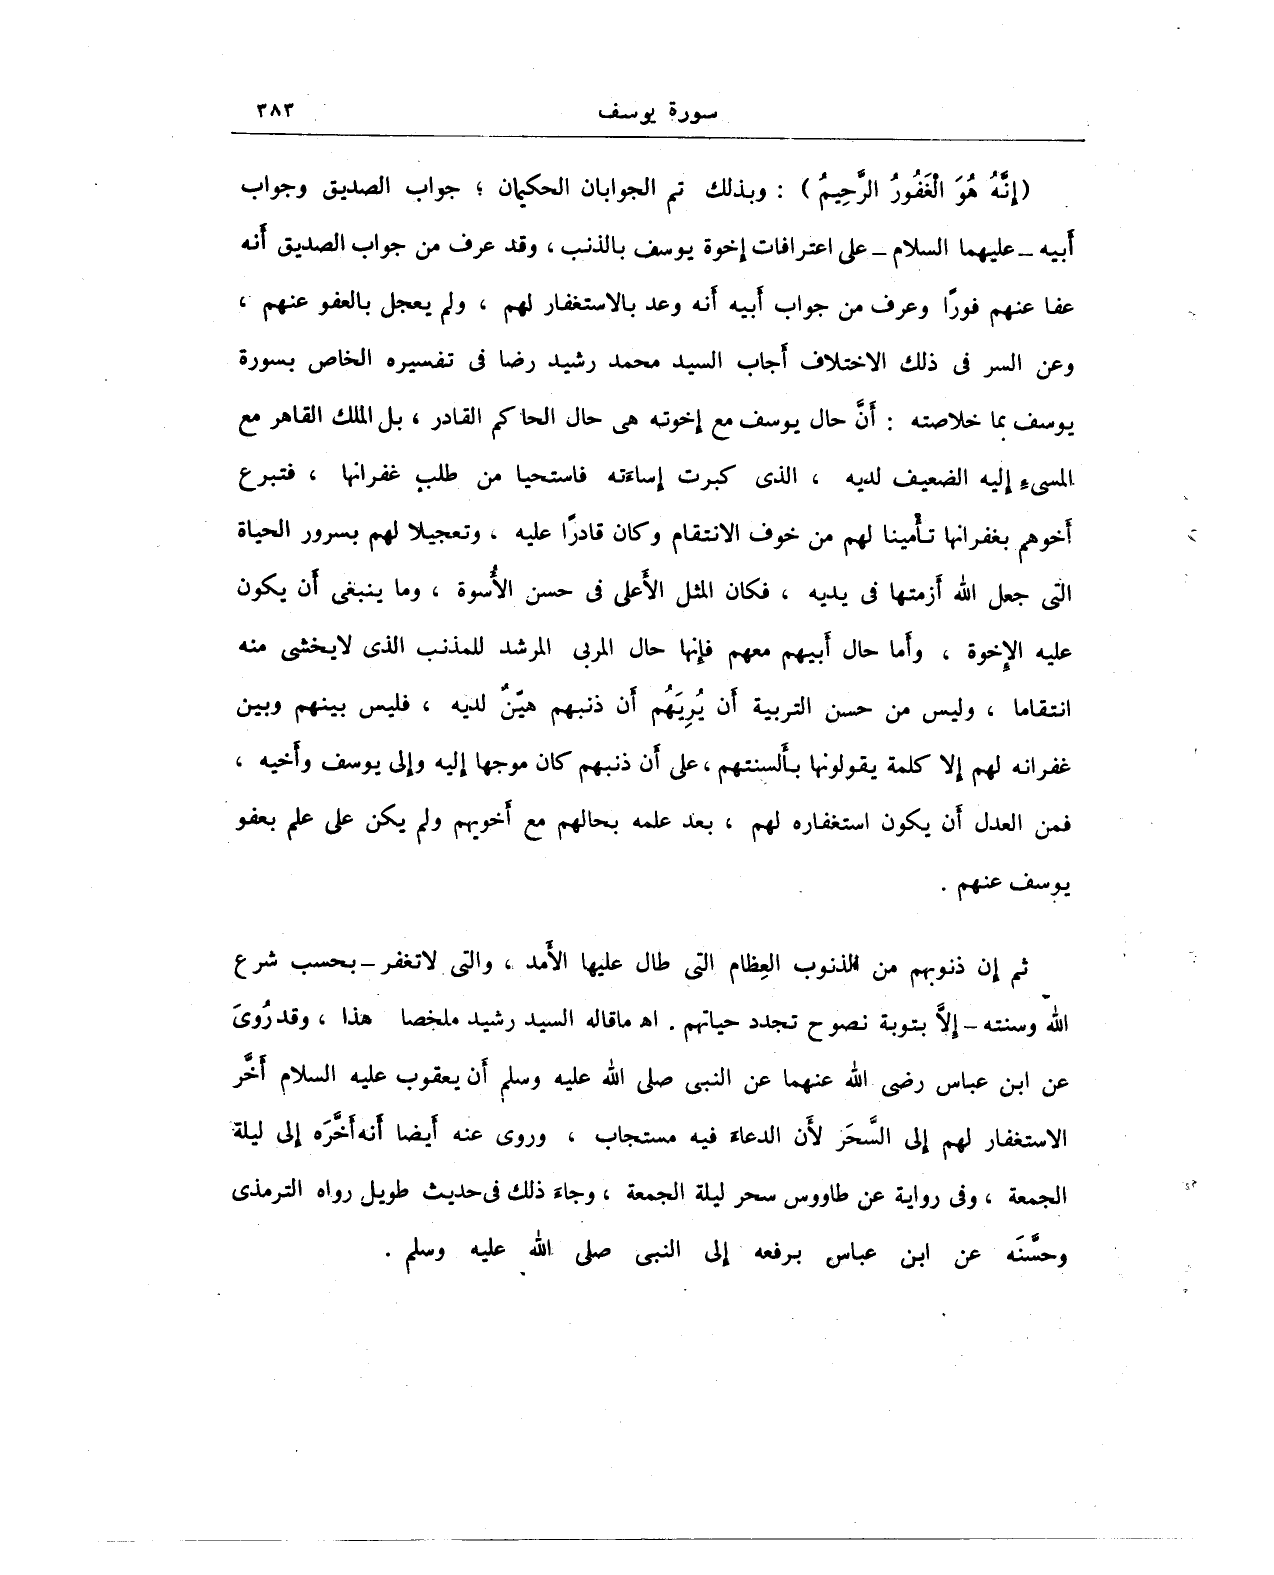 سورة يوسف ٣٨٣
(إِنَّهُ هُوَ الْغَفُورُ الرَّحِيمُ) : وبذلك تم الجوابان الحكيمان ؛ جواب الصديق وجواب
أبيه ــ عليهما السلام ــ على اعترافات إخوة يوسف بالذنب ، وقد عرف من جواب الصديق أنه
عفا عنهم فورًا وعرف من جواب أبيه أنه وعد بالاستغفار لهم ، ولم يعجل بالعفو عنهم ،
وعن السر فى ذلك الاختلاف أجاب السيد محمد رشيد رضا فى تفسيره الخاص بسورة
يوسف بما خلاصته : أنَّ حال يوسف مع إخوته هى حال الحاكم القادر ، بل الملك القاهر مع
المسىء إليه الضعيف لديه ، الذى كبرت إساءته فاستحيا من طلب غفرانها ، فتبرع
أخوهم بغفرانها تأمينا لهم من خوف الانتقام وكان قادرًا عليه ، وتعجيلا لهم بسرور الحياة
التى جعل الله أزمتها فى يديه ، فكان المثل الأعلى فى حسن الأُسوة ، وما ينبغى أن يكون
عليه الإخوة ، وأما حال أبيهم معهم فإنها حال المربى المرشد للمذنب الذى لايخشى منه
انتقاما ، وليس من حسن التربية أن يُرِيَهُم أن ذنبهم هيّنٌ لديه ، فليس بينهم وبين
غفرانه لهم إلا كلمة يقولونها بألسنتهم ، على أن ذنبهم كان موجها إليه وإلى يوسف وأخيه ،
فمن العدل أن يكون استغفاره لهم ، بعد علمه بحالهم مع أخويهم ولم يكن على علم بعفو
يوسف عنهم .
ثم إن ذنوبهم من الذنوب العِظام التى طال عليها الأمد ، والتى لاتغفر ــ بحسب شرع
الله وسنته ــ إلاَّ بتوبة نصوح تجدد حياتهم . اه ماقاله السيد رشيد ملخصا هذا ، وقد رُوىَ
عن ابن عباس رضى الله عنهما عن النبى صلى الله عليه وسلم أن يعقوب عليه السلام أخَّر
الاستغفار لهم إلى السَّحَر لأن الدعاء فيه مستجاب ، وروى عنه أيضا أنه أخَّرَه إلى ليلة
الجمعة ، وفى رواية عن طاووس سحر ليلة الجمعة ، وجاء ذلك فى حديث طويل رواه الترمذى
وحسَّنَه عن ابن عباس برفعه إلى النبى صلى الله عليه وسلم .